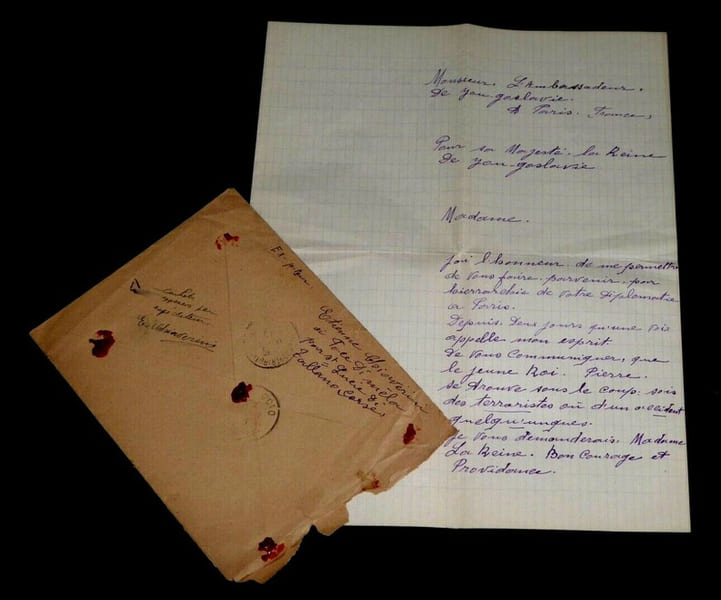 Monsieur. L'Ambassadeur.
De You-goslavie.
A Paris. France.
Pour sa Majesté. la Reine
De You-goslavie
Madame.
J'ai l'honneur de me permettre
de vous faire. parvenir. par
hierrarchie de votre Diplomatie
a Paris.
Depuis Deux jours qu'une Voix
appelle mon esprit
De vous Communiquer, que
le jeune Roi. Pierre.
se trouve sous le coup. sois
des terraristes ou d'un accident
quelqu'unques.
je vous demanderais. Madame
La Reine. Bon Courage et
Providance.
Etienne